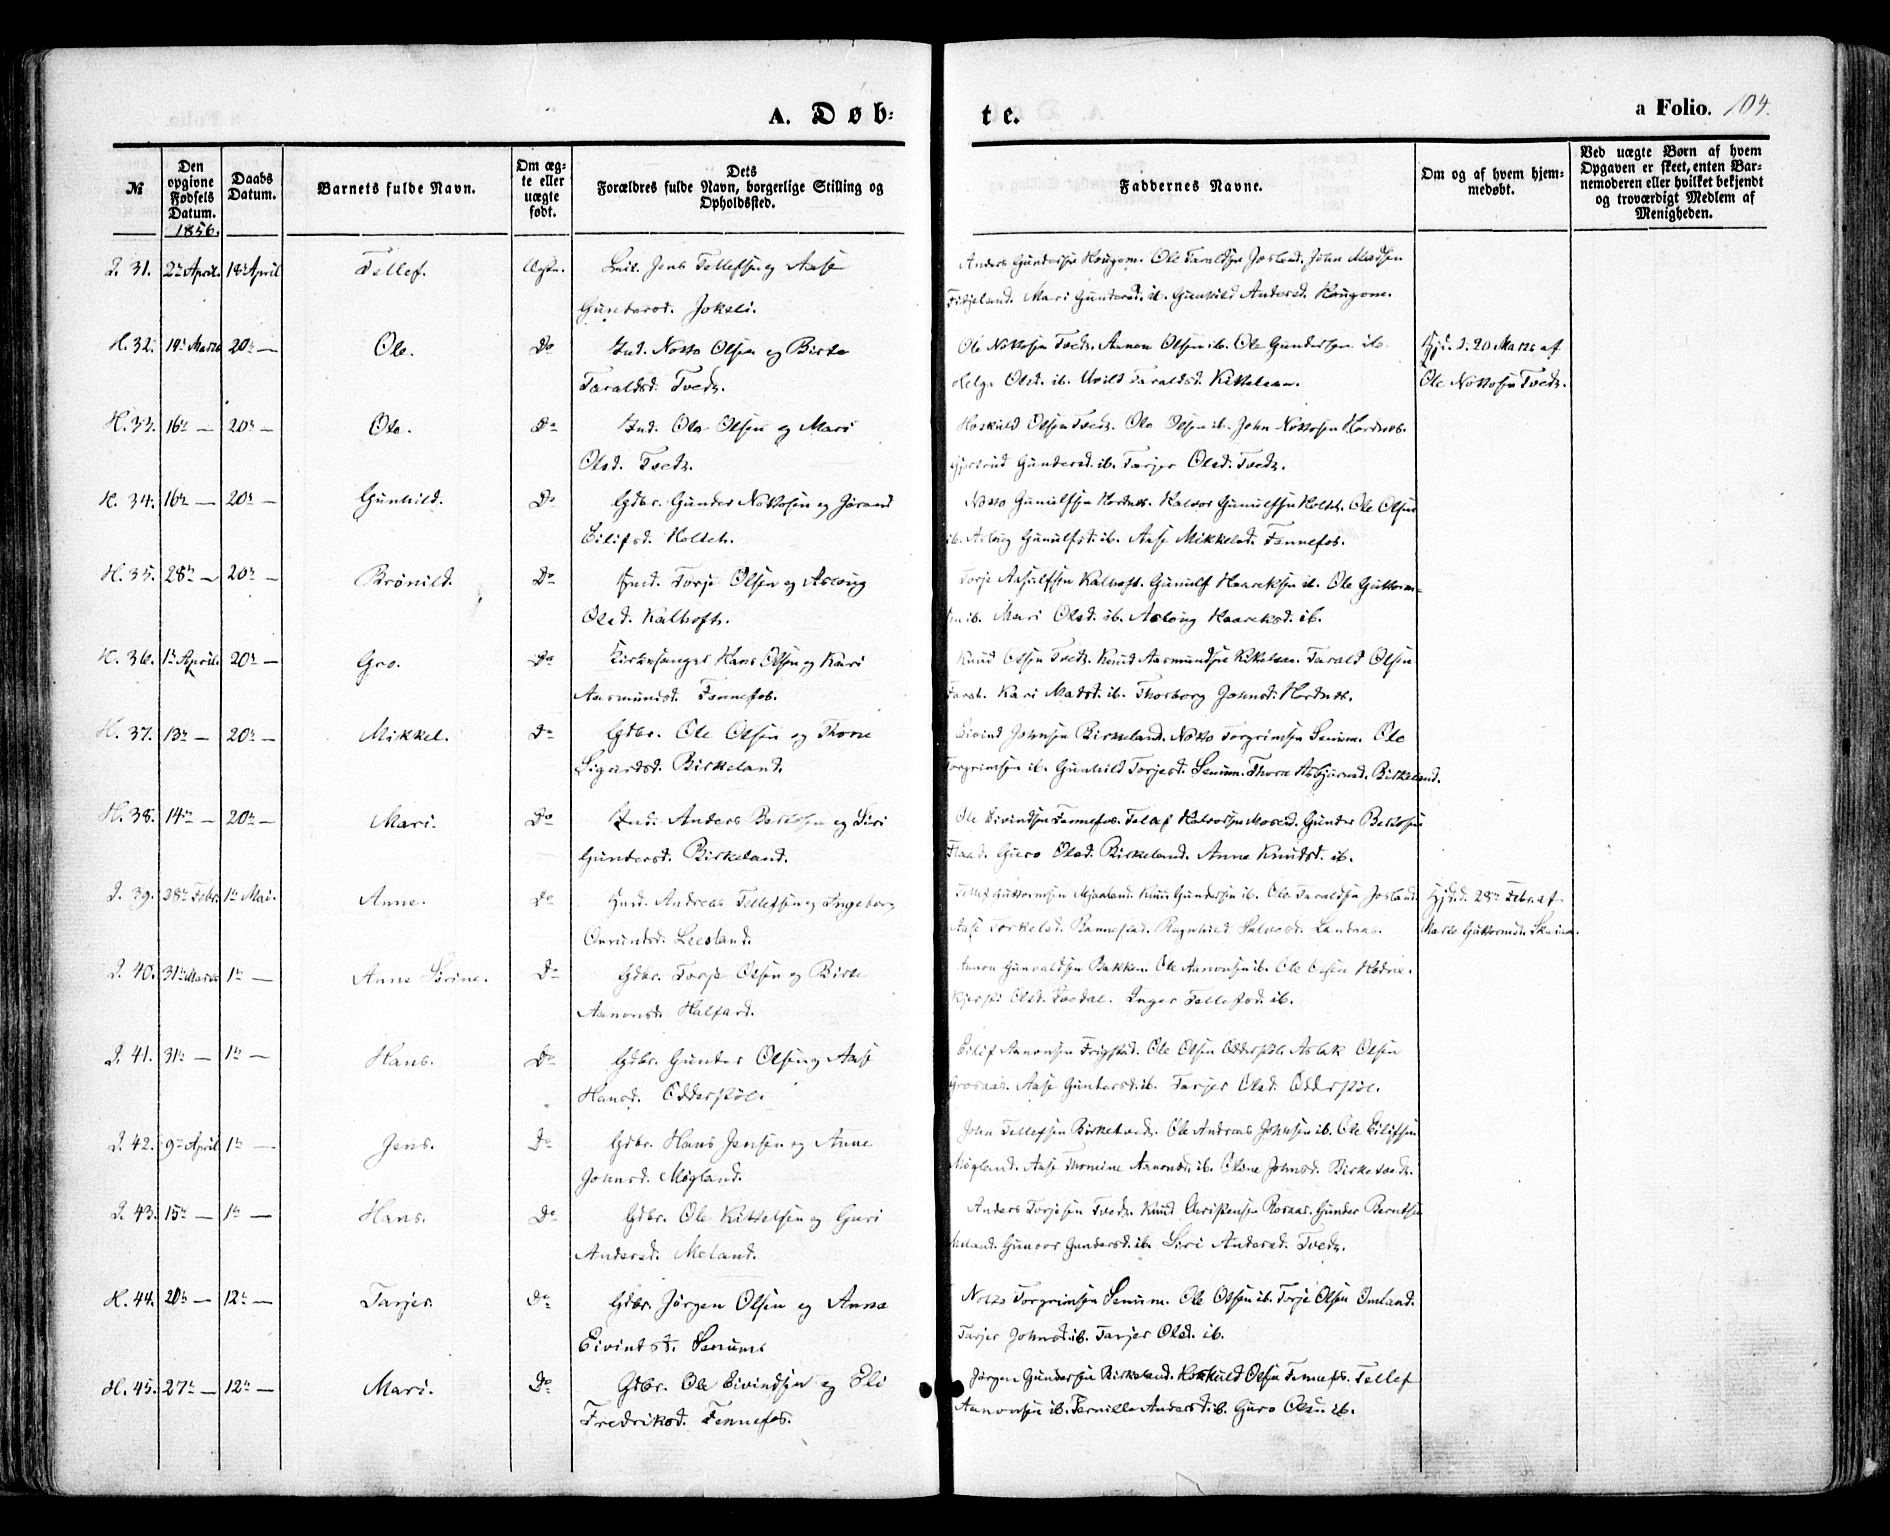 A. Døb:
te.
a Folio. 104.
№
Den opgivne Fødsels Datum.
1856.
Daabs Datum.
Barnets fulde Navn.
Om ægte eller uægte født.
Dets Forældres fulde Navn, borgerlige Stilling og Opholdssted.
Faddernes Navne.
Om og af hvem hjemmedøbt.
Ved uægte Børn af hvem Opgaven er skeet, enten Barnemoderen eller hvilket bekjendt og troværdigt Medlem af Menigheden.
31. 2n April. 18n April Tellef. Ægte. Jens Tellefsen og Aase
Gundersd. Joksli.
Anders Gundersen Hougom. Ole Taraldsen Josland. John Madsen
Fidjeland. Mari Gundersd. ib. Gunhild Andersd. Hougom.
H. 32. 19n Marts 20n — Ole. Do Ind. Notto Olsen og Birte
Taraldsd. Tvedt.
Ole Nottosen Tvedt. Aanon Olsen ib. Ole Gundersen ib.
Helge Olsd. ib. Taraldsd. Kittelsaa.
Hjd. d. 20 Marts af
Ole Nottosen Tvedt.
H. 33. 16n — 20n — Ole. Do Ind. Ole Olsen og Mari
Olsd. Tvedt.
Høskuld Olsen Tvedt. Ole Olsen ib. John Nottosen Hordnes.
Gundersd. ib. Tarjer Olsd. Tvedt.
H. 34. 16n — 20n — Gunhild. Do Gdbr. Gunder Nottosen og Jorand
Eilifsd. Holteh.
Notto Gunulfsen Hordnes. Halvor Gunulfsen Holteh. Ole Olsen
ib. Asloug Gunulfsd. ib. Aase Mikkelsd. Fennefos.
H. 35. 28n — 20n — Brønild. Do Ind. Torje Olsen og Asloug
Olsd. Kalhoft.
Torje Aasulfsen Kalhoft. Gunulf Haareksen ib. Ole Guttorm-
sen ib. Mari Olsd. ib. Asloug Haareksd. ib.
H. 36. 1n April. 20n — Gro. Do Kirkesanger Hans Olsen og Kari
Aasmundsd. Fennefos.
Knud Olsen Tvedt. Knud Aasmundsen Kittelsaa. Tarald Olsen
Kari Madsd. ib. Thorborg Johnsd. Hordnes.
H. 37. 13n — 20n — Mikkel. Do Gdbr. Ole Olsen og Thone
Sigurdsd. Birkeland.
Eivind Johnsen Birkeland. Notto Torgrimsen Senum. Ole
Torgrimsen ib. Gunhild Torjesd. Senum. Thora Asbjørnsd. Birkeland.
H. 38. 14n — 20n — Mari. Do Ind. Anders Bentsen og Siri
Gundersd. Birkeland.
Ole Eivindsen Fennefos. Halvorsen Gunder Bentsen
Flaad. Guro Olsd. Birkeland. Anne Knudsd. ib.
39. 28n Febr. 1n Mai. Anne. Do Andreas Tellefsen og Ingeborg
Onundsd. Liestand.
Tellef Guttormsen Mjaaland. Knud Gundersen ib. Ole Taraldsen Josland.
Aase Torkelsd. Bannestad. Ragnhild Salvesd. Landaas.
Hjd. d. 28n Febr. af
Marte Guttormsd.
40. 31n Marts 1n — Anne Serine. Do Gdbr. Torje Olsen og Birte
Aanonsd. Halfard.
Aanon Gunvaldsen Bakken. Ole Aanonsen ib. Ole Olsen
Olsd. Tvedal. Inger Tellefsd. ib.
41. 31n — 1n — Hans. Do Gdbr. Gunder Olsen og Aase
Hansd. Odderskøl.
Eilif Aanonsen Frigstad. Ole Olsen Odderskøl. Aslak Olsen
Grosaas. Aase Gundersd. ib. Tarjer Olsd. Odderskøl.
42. 9n April 1n — Jens. Do Gdbr. Hans Jensen og Anne
Johnsd. Møgland.
John Tellefsen Birketvedt. Ole Andreas Johnsen ib. Ole Eilifsen
Møgland. Aase Thomine Aanonsd. ib. Oline Johnsd. Birketvedt.
43. 15n — 1n — Hans. Do Gdbr. Ole Kittelsen og Guri
Andersd. Meland.
Anders Torjesen Tvedt. Knud Christensen Rosaas. Gunder Berntsen
Meland. Gunvor Gundersd. ib. Siri Andersd. Tvedt.
H. 44. 20n — 12n — Tarjer. Do Gdbr. Jørgen Olsen og Anne
Eivindsd. Senum.
Notto Torgrimsen Senum. Ole Olsen ib. Torje Olsen Omland.
Tarjer Johnsd. ib. Tarjer Olsd. ib.
H. 45. 27n — 12n — Mari. Do Gdbr. Ole Eivindsen og Eli
Fredriksd. Fennefos.
Jørgen Gundersen Birkeland. Høskuld Olsen Fennefos. Tellef
Aanonsen ib. Pernille Andersd. ib. Guro Olsd. ib.